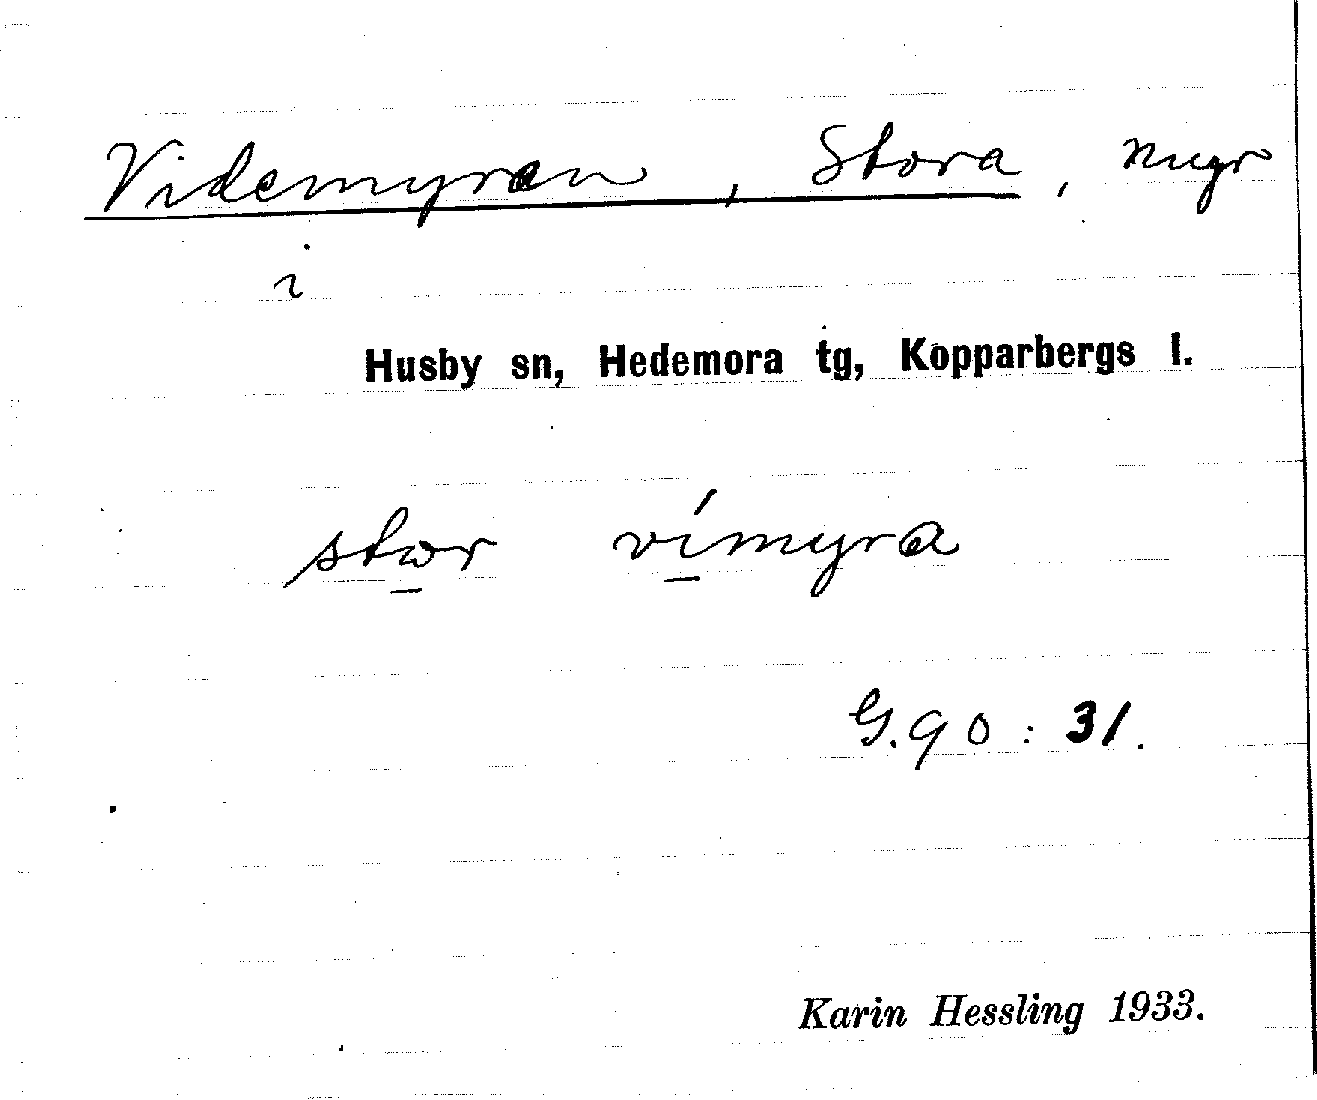 Videmyran, Stora, myr
i
Husby sn, Hedemora tg, Kopparbergs l.
stor vímyra
G. 90 : 31.
Karin Hessling 1933.